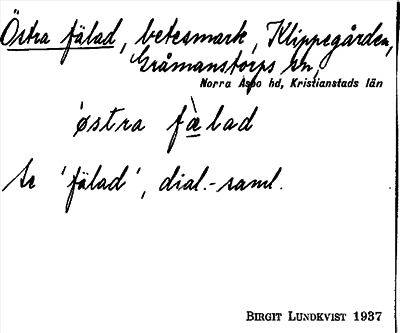 Östra fälad, betesmark, Klippegården,
Gråmanstorps sn,
Norra Åsbo hd, Kristianstads län
'østra fàlad
Se 'fälad', dial.-saml.
BIRGIT LUNDKVIST 1937